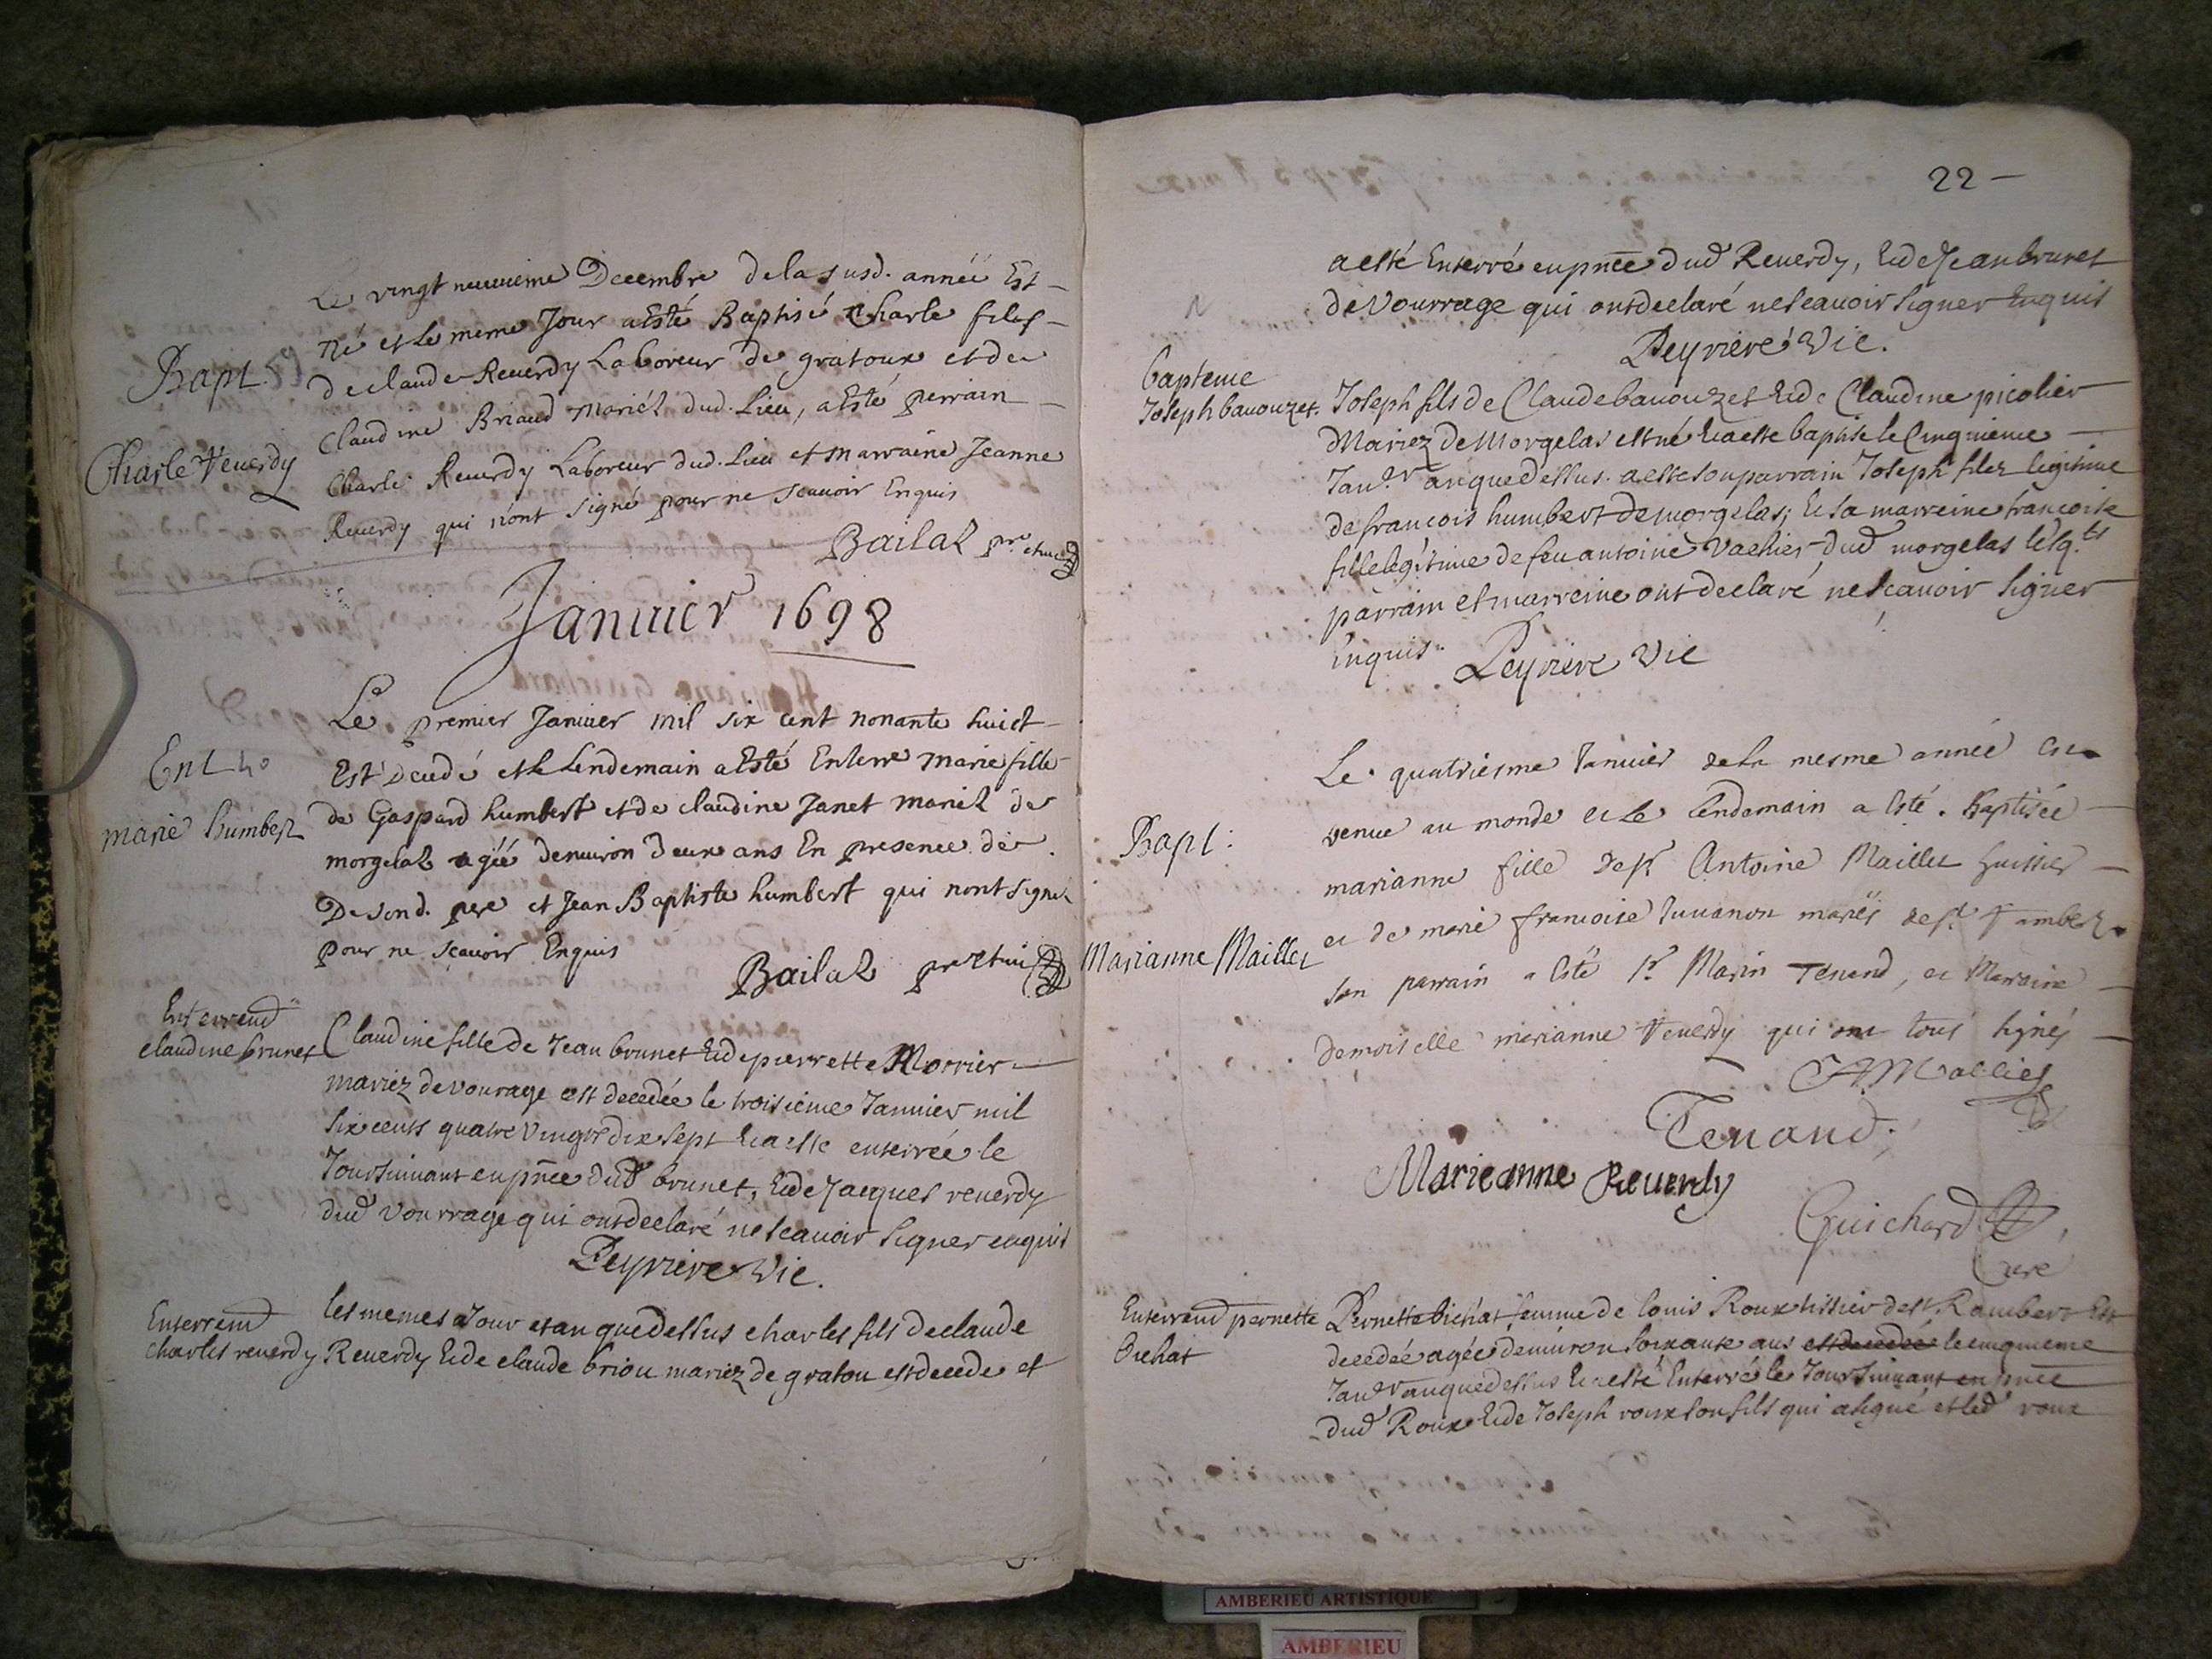 Le vingt neuvieme Decembre de la susd. année Est
né et le meme Jour a Esté Baptisé Charle fils
Bapt. 59
de claude Reverdy Laboreur de gratoux et de
Claudine Briaud Mariéz dud. Lieu, a Esté perrain
Charle Reverdy
Charle Reverdy Laboreur dud. Lieu et marraine Jeanne
Reverdy qui n'ont signé pour ne scavoir Enquis
Bailat pr.
Janvier 1698
Le premier Janvier mil six cent nonante huict
Ent
Est decedé et le Lendemain a Esté Enterré marie fille
de Gaspard humbert et de claudine Janet mariéz de
marie humbert
morgelaz agéé denviron deux ans En presence de
De sond. pere et Jean Baptiste humbert qui n'ont signé
pour ne scavoir Enquis
Bailat
Enterremt
claudine brunet
Claudine fille de Jean brunet Et de pierrette Morrier
mariez de vourage est decedée le troisieme Janvier mil
six cents quatre vingts dix sept Et a este enterrée le
Jour suivant en pnce dud brunet, Et de Jacques reverdy
dud vourrage qui ont declaré ne scavoir signer enquis
Peyriere Vic.
Enterremt
charles reverdy
les memes Jour et an que dessus charles fils de claude
Reverdy Et de claude briou mariez de gratou est decede et
22
a esté Enterré en pnce dud Reverdy, Et de Jean brunet
de vourrage qui ont declaré ne scavoir signer Enquis
Peyriere Vic.
bapteme
Joseph bavouzet.
Joseph fils de Claude bavouzet Et de Claudine picolier
Mariez de Morgelas est né Et a este baptisé le Cinquieme
Janvr an que dessus. a este son parrain Joseph filz legitime
de francois humbert de morgelas; Et sa marreine francoise
fille legitime de feu antoine Vachier dud morgelas lesqts
parrain et marreine ont declaré ne scavoir signer
Enquis.
Peyriere Vic
Le quatriesme Janvier de la mesme année est
venue au monde et Le Lendemain a esté Baptisée
Bapt:
marianne fille de sr Antoine Maillet huissier
et de marie francoise Juvanon mariés de st Rambert.
Marianne Maillet
son parrain a esté sr Marin Tenend, et Marraine
Demoiselle marianne Reverdy qui ont tous signés
Tenand.
Marieanne Reverdy
Guichard
Curé
Enterremt pernette
bichat
Pernette bichat femme de louis Roux tissier de st Rambert Est
decedée agée denviron soixante ans est decedée le cinquieme
Janvr an que dessus Et a esté Enterré le Jour suivant en pnce
dud Roux Et de Joseph roux son fils qui a signé et led roux
AMBERIEU ARTISTIQUE
AMBERIEU